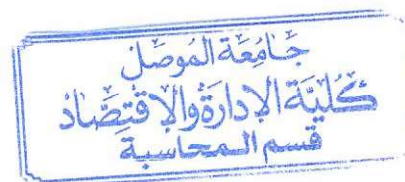 جَامِعَة المُوصَل
كُليَّة الإدَارَةُ والإقتِصَاد
قسم المحاسبة